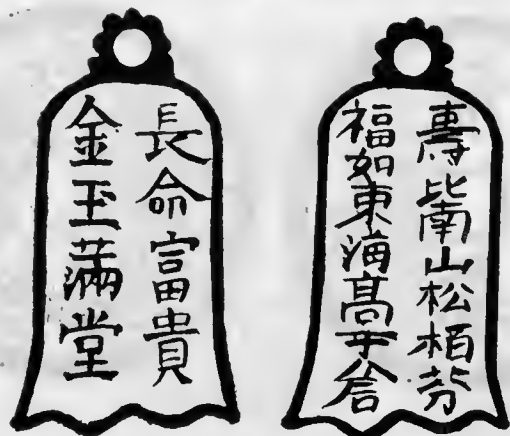 長命富貴
金玉滿堂
壽比南山松栢芬
福如東海髙平